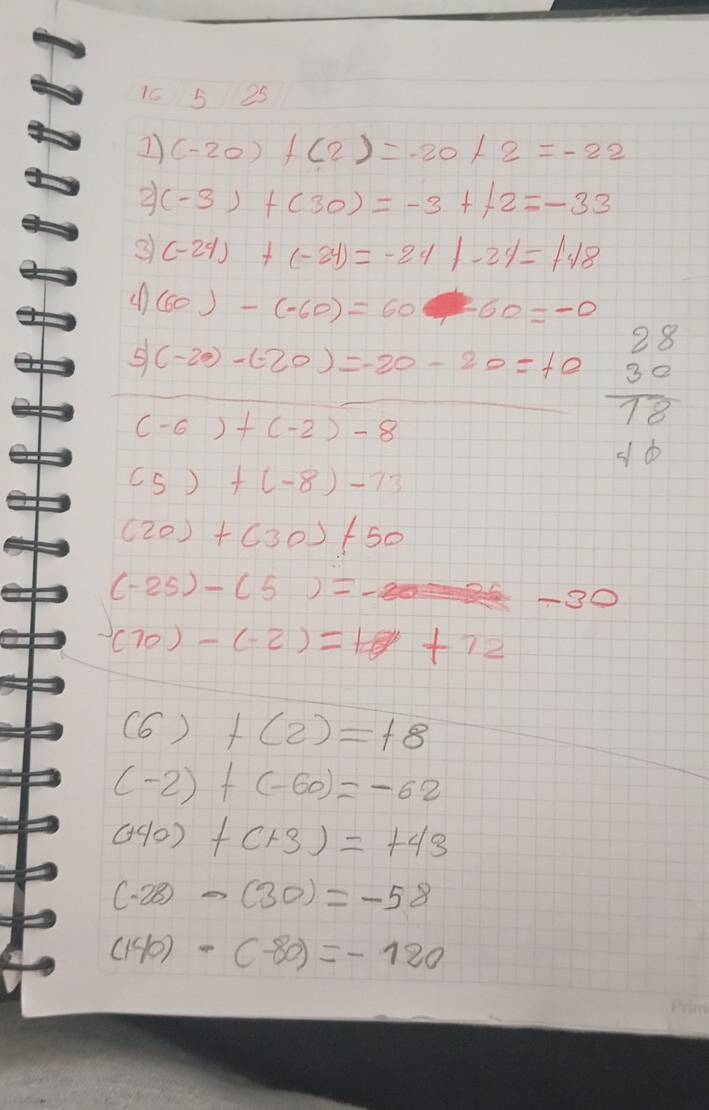 16 5 25
1) (-20) + (2) = -20 + 2 = -22
2) (-3) + (30) = -3 + +2 = -33
3) (-24) + (-24) = -24 + -24 = +48
4) (60) - (-60) = 60 -60 = -0
5) (-20) - (-20) = -20 - 20 = +0
28
30
18
(-6) + (-2) - 8
(5) + (-8) - 13
(20) + (30) + 50
(-25) - (5) = - -30
(10) - (-2) = + 12
(6) + (2) = +8
(-2) + (-60) = -62
(+40) + (+3) = +43
(-28) - (30) = -58
(+40) - (-80) = - 120
Prim